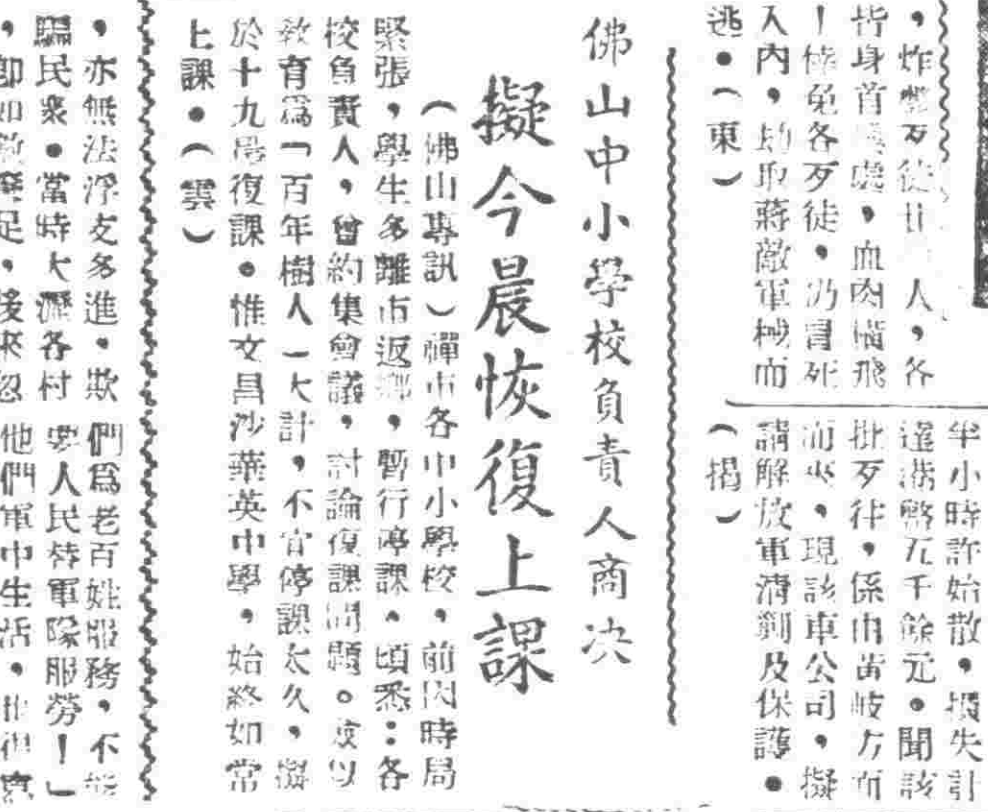 ，炸斃歹徒廿　人，各
皆身首　處，血肉橫飛
！倖免各歹徒，仍冒死
入內，劫取蔣敵軍械而
逃。（東）
半小時許始散，損失計
達港幣五千餘元。聞該
批歹徒，係由黃岐方面
而來，現該車公司，擬
請解放軍清剿及保護。
（揭）
佛山中小學校負責人商决
擬今晨恢復上課
（佛山專訊）禪市各中小學校，前因時局
緊張，學生多離市返鄉，暫行停課。頃悉：各
校負責人，曾約集會議，討論復課問題。咸以
敎育爲「百年樹人」大計，不宜停課太久，擬
於十九晨復課。惟文昌沙華英中學，始終如常
上課。（雲）
，亦無法淨支多進。欺
騙民衆。當時大瀝各村
，卽如
們爲老百姓服務，不能
要人民替軍隊服勞！」
他們軍中生活，